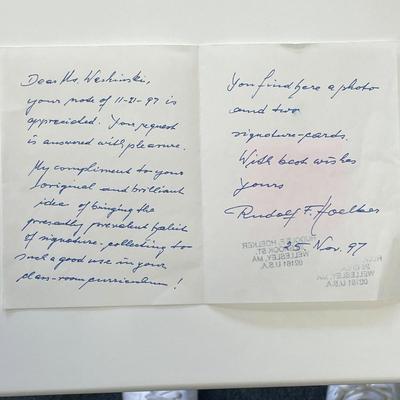 Dear Ms. Weshinski,
your note of 11-21-97 is
appreciated. Your request
is answered with pleasure.
My compliment to your
original and brilliant
idea of bringing the
presently prevalent habit
of signature-collecting to
such a good use in your
class-room curriculum!
You find here a photo
and two
signature-cards.
With best wishes
yours
Rudolf F. Hoelker
25 Nov. 97
RUDOLF F. HOELKER
ST.
WELLESLEY, MA
02181 U.S.A.
WELLESLEY, MA
02181 U.S.A.